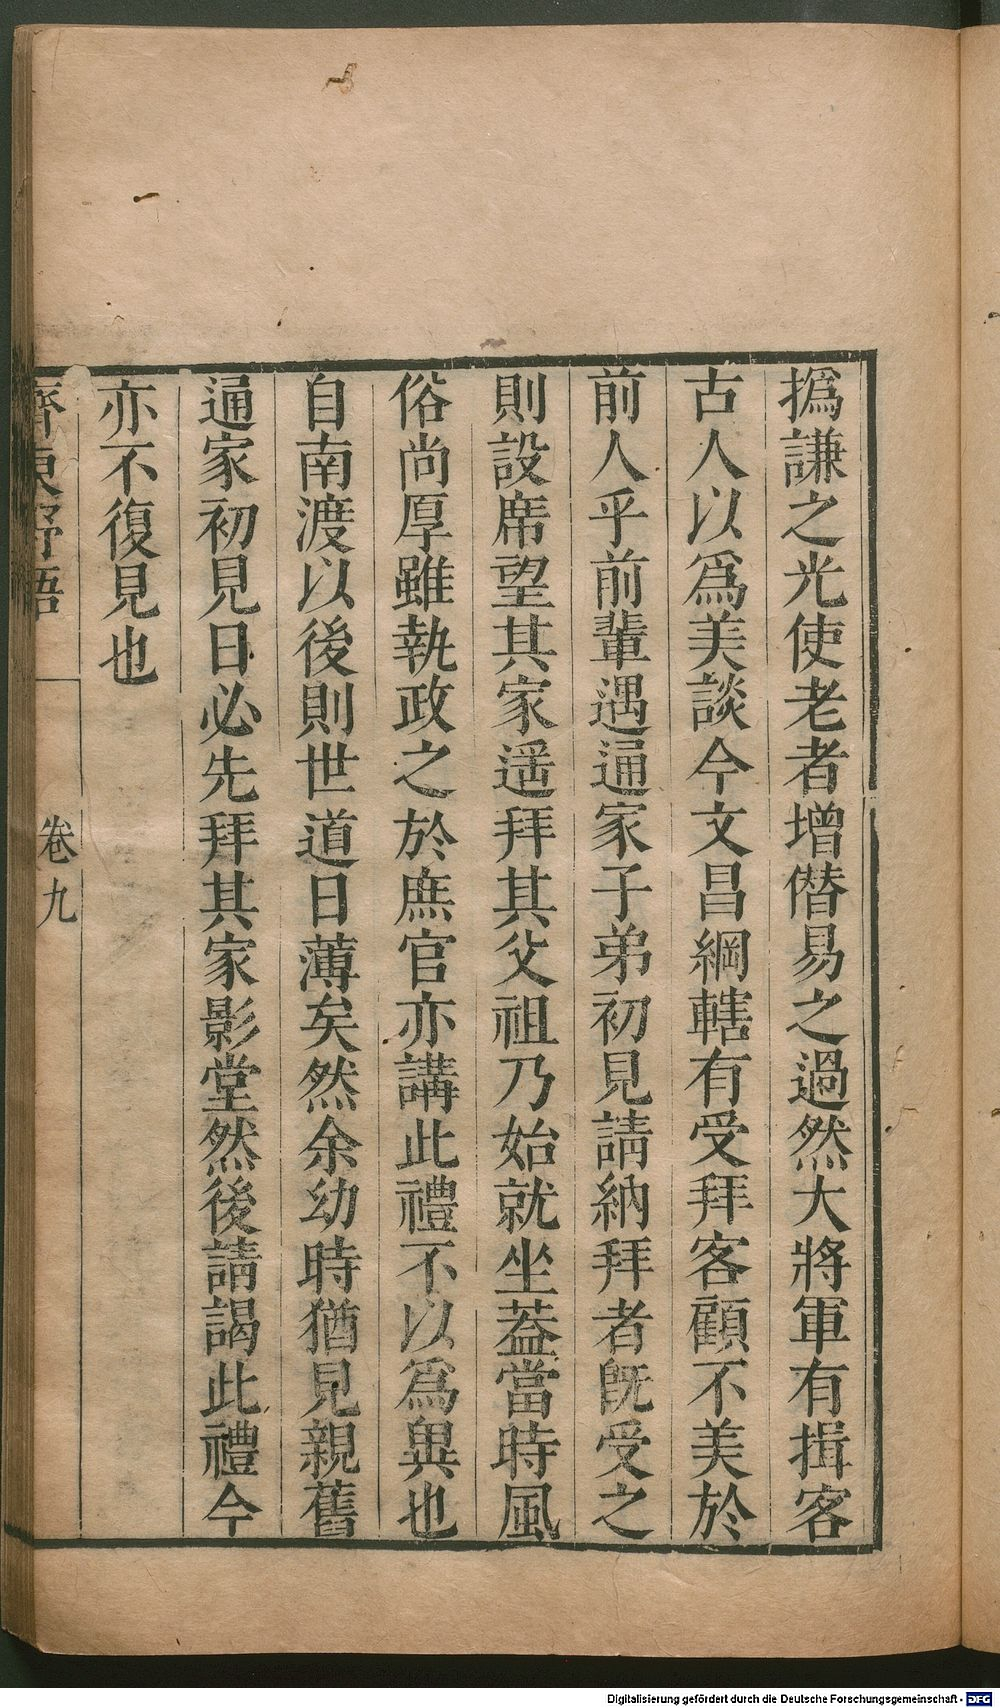 撝謙之光使老者增僭易之過然大將軍有揖客
古人以爲美談今文昌綱轄有受拜客顧不美於
前人乎前輩遇通家子弟初見請納拜者旣受之
則設席望其家遥拜其父祖乃始就坐葢當時風
俗尚厚雖執政之於庶官亦講此禮不以爲異也
自南渡以後則世道日薄矣然余幼時猶見親舊
通家初見日必先拜其家影堂然後請謁此禮今
亦不復見也
齊東野語
卷九
Digitalisierung gefördert durch die Deutsche Forschungsgemeinschaft - DFG